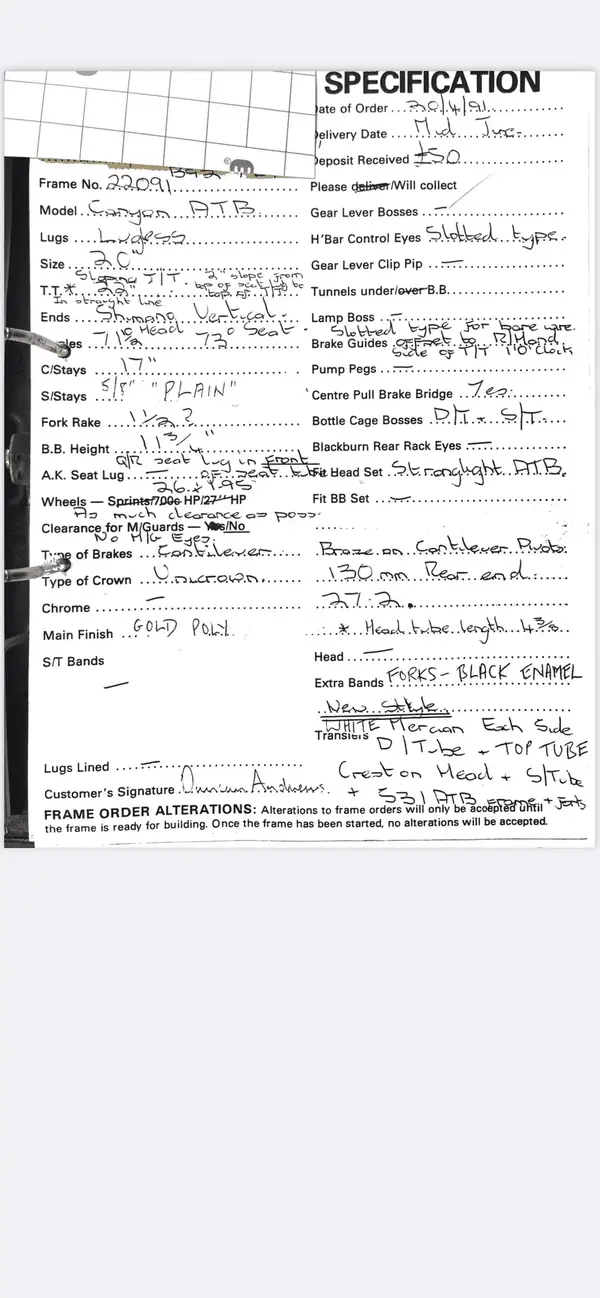 SPECIFICATION
Date of Order 30/4/91
Delivery Date Mid June
Deposit Received £50
Frame No. 22091
Please deliver/Will collect
Model Canyon ATB.
Gear Lever Bosses —
Lugs Lugless
H'Bar Control Eyes Slotted type.
Size 20"
Gear Lever Clip Pip —
Sloping T/T 2" slope from
top of seat lug to
top of
T.T.* 22"
In straight line
Tunnels under/over B.B.
Ends Shimano Vertical.
Lamp Boss —
71° Head 73° Seat.
Slotted type for bare wire.
Brake Guides offset to R/Hand
Side of T/T 1'O'Clock
C/Stays 17"
Pump Pegs —
S/Stays 5/8" "PLAIN"
Centre Pull Brake Bridge Yes.
Fork Rake 1 1/2 ?
Bottle Cage Bosses D/T + S/T.
B.B. Height 11 3/4"
Blackburn Rear Rack Eyes —
Q/R seat lug in Front
of seat tube
A.K. Seat Lug —
Fit Head Set Stronglight ATB.
26 x 1.95
Wheels — Sprints/700c HP/27" HP
Fit BB Set —
As much clearance as poss.
Clearance for M/Guards — Yes/No
No M/G Eyes.
Type of Brakes Cantilever
Braze on Cantilever Pivots.
Type of Crown Unicrown.
130mm Rear end.
Chrome —
27.2.
Main Finish GOLD POLY.
* Head tube length 4 3/8
S/T Bands —
Head —
Extra Bands FORKS - BLACK ENAMEL
New Style
WHITE Mercian Each Side
Transfers D/Tube + TOP TUBE
Lugs Lined —
Crest on Head + S/Tube
Customer's Signature Duncan Andrews.
+ 531 ATB Frame + Forks
FRAME ORDER ALTERATIONS: Alterations to frame orders will only be accepted until
the frame is ready for building. Once the frame has been started, no alterations will be accepted.